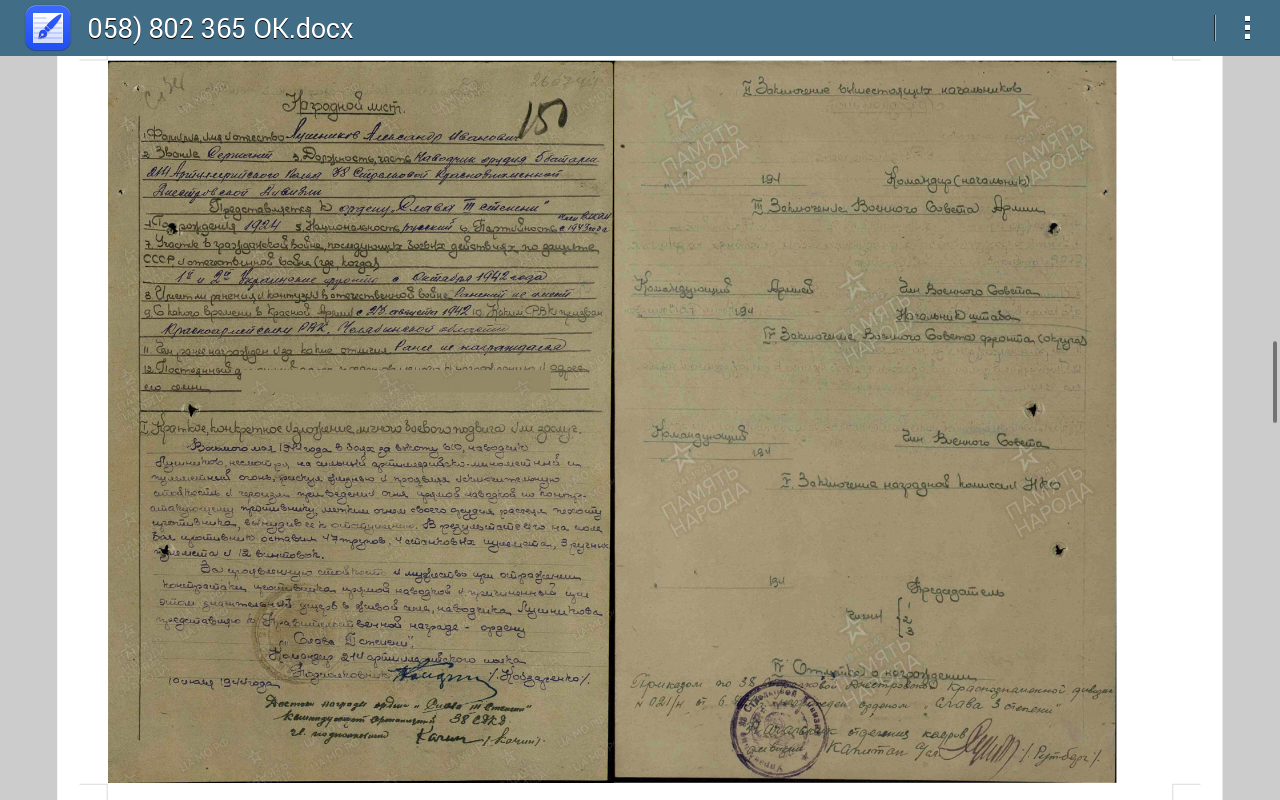 058) 802 365 OK.docx
Наградной лист.
150
1. Фамилия, имя и отчество Лушников Александр Иванович
2. Звание Сержант 3. Должность, часть Наводчик орудия батареи
214 Артиллерийского полка 38 Стрелковой Краснознаменной
Днестровской Дивизии
Представляется к ордену "Слава III степени"
4. Год рождения 1924 5. Национальность русский 6. Партийность с 1943 года
7. Участие в гражданской войне, последующих боевых действиях по защите
СССР и отечественной войне (где, когда)
1й и 2й Украинские фронты с Октября 1942 года
8. Имеет ли ранения и контузии в отечественной войне Ранений не имеет
9. С какого времени в Красной Армии с 25 августа 1942 10. Каким РВК призван
Красноармейским РВК, Челябинской области
11. Чем ранее награжден и за какие отличия Ранее не награждался
12. Постоянный адрес
его семьи
I. Краткое, конкретное изложение личного боевого подвига или заслуг.
Восьмого мая года в боях за высоту наводчик
Лушников, несмотря на сильный артиллерийско-минометный и
пулеметный огонь, рискуя жизнью и проявляя исключительную
стойкость и героизм, при ведении огня прямой наводкой по контр-
атакующему противнику, метким огнем своего орудия рассеял пехоту
противника, вынудив её к отступлению. В результате его на поле
боя противник оставил 47 трупов, 4 станковых пулемета, 3 ручных
пулемета и 12 винтовок.
За проявленную стойкость и мужество при отражении
контратаки противника прямой наводкой и причиненный при
этом значительный ущерб в живой силе, наводчика Лушникова
представляю к Правительственной награде - ордену
"Слава III степени".
Командир 214 артиллерийского полка
Подполковник /Кобзаренко/.
10 июля 1944 года
Достоин награды орден "Слава III степени"
Командующий артиллерией 38 СДКД
гв. подполковник
II Заключение вышестоящих начальников
" " 194 Командир (начальник)
III Заключение Военного Совета Армии
Командующий Армией Член Военного Совета
" " 194 Начальник штаба
IV Заключение Военного Совета фронта (округа)
Командующий Член Военного Совета
" " 194
V. Заключение наградной комиссии НКО
194 Председатель
Члены { 1
2
3
VI Отметка о награждении
Приказом по 38 Стрелковой Днестровской Краснознаменной дивизии
№ 021/н от награжден орденом "Слава 3 степени"
Начальник отделения кадров
дивизии Капитан а/сл /Рутберг/.
ПАМЯТЬ НАРОДА
ПАМЯТЬ НАРОДА
ПАМЯТЬ НАРОДА
ПАМЯТЬ НАРОДА
ПАМЯТЬ НАРОДА
ПАМЯТЬ НАРОДА
ПАМЯТЬ НАРОДА